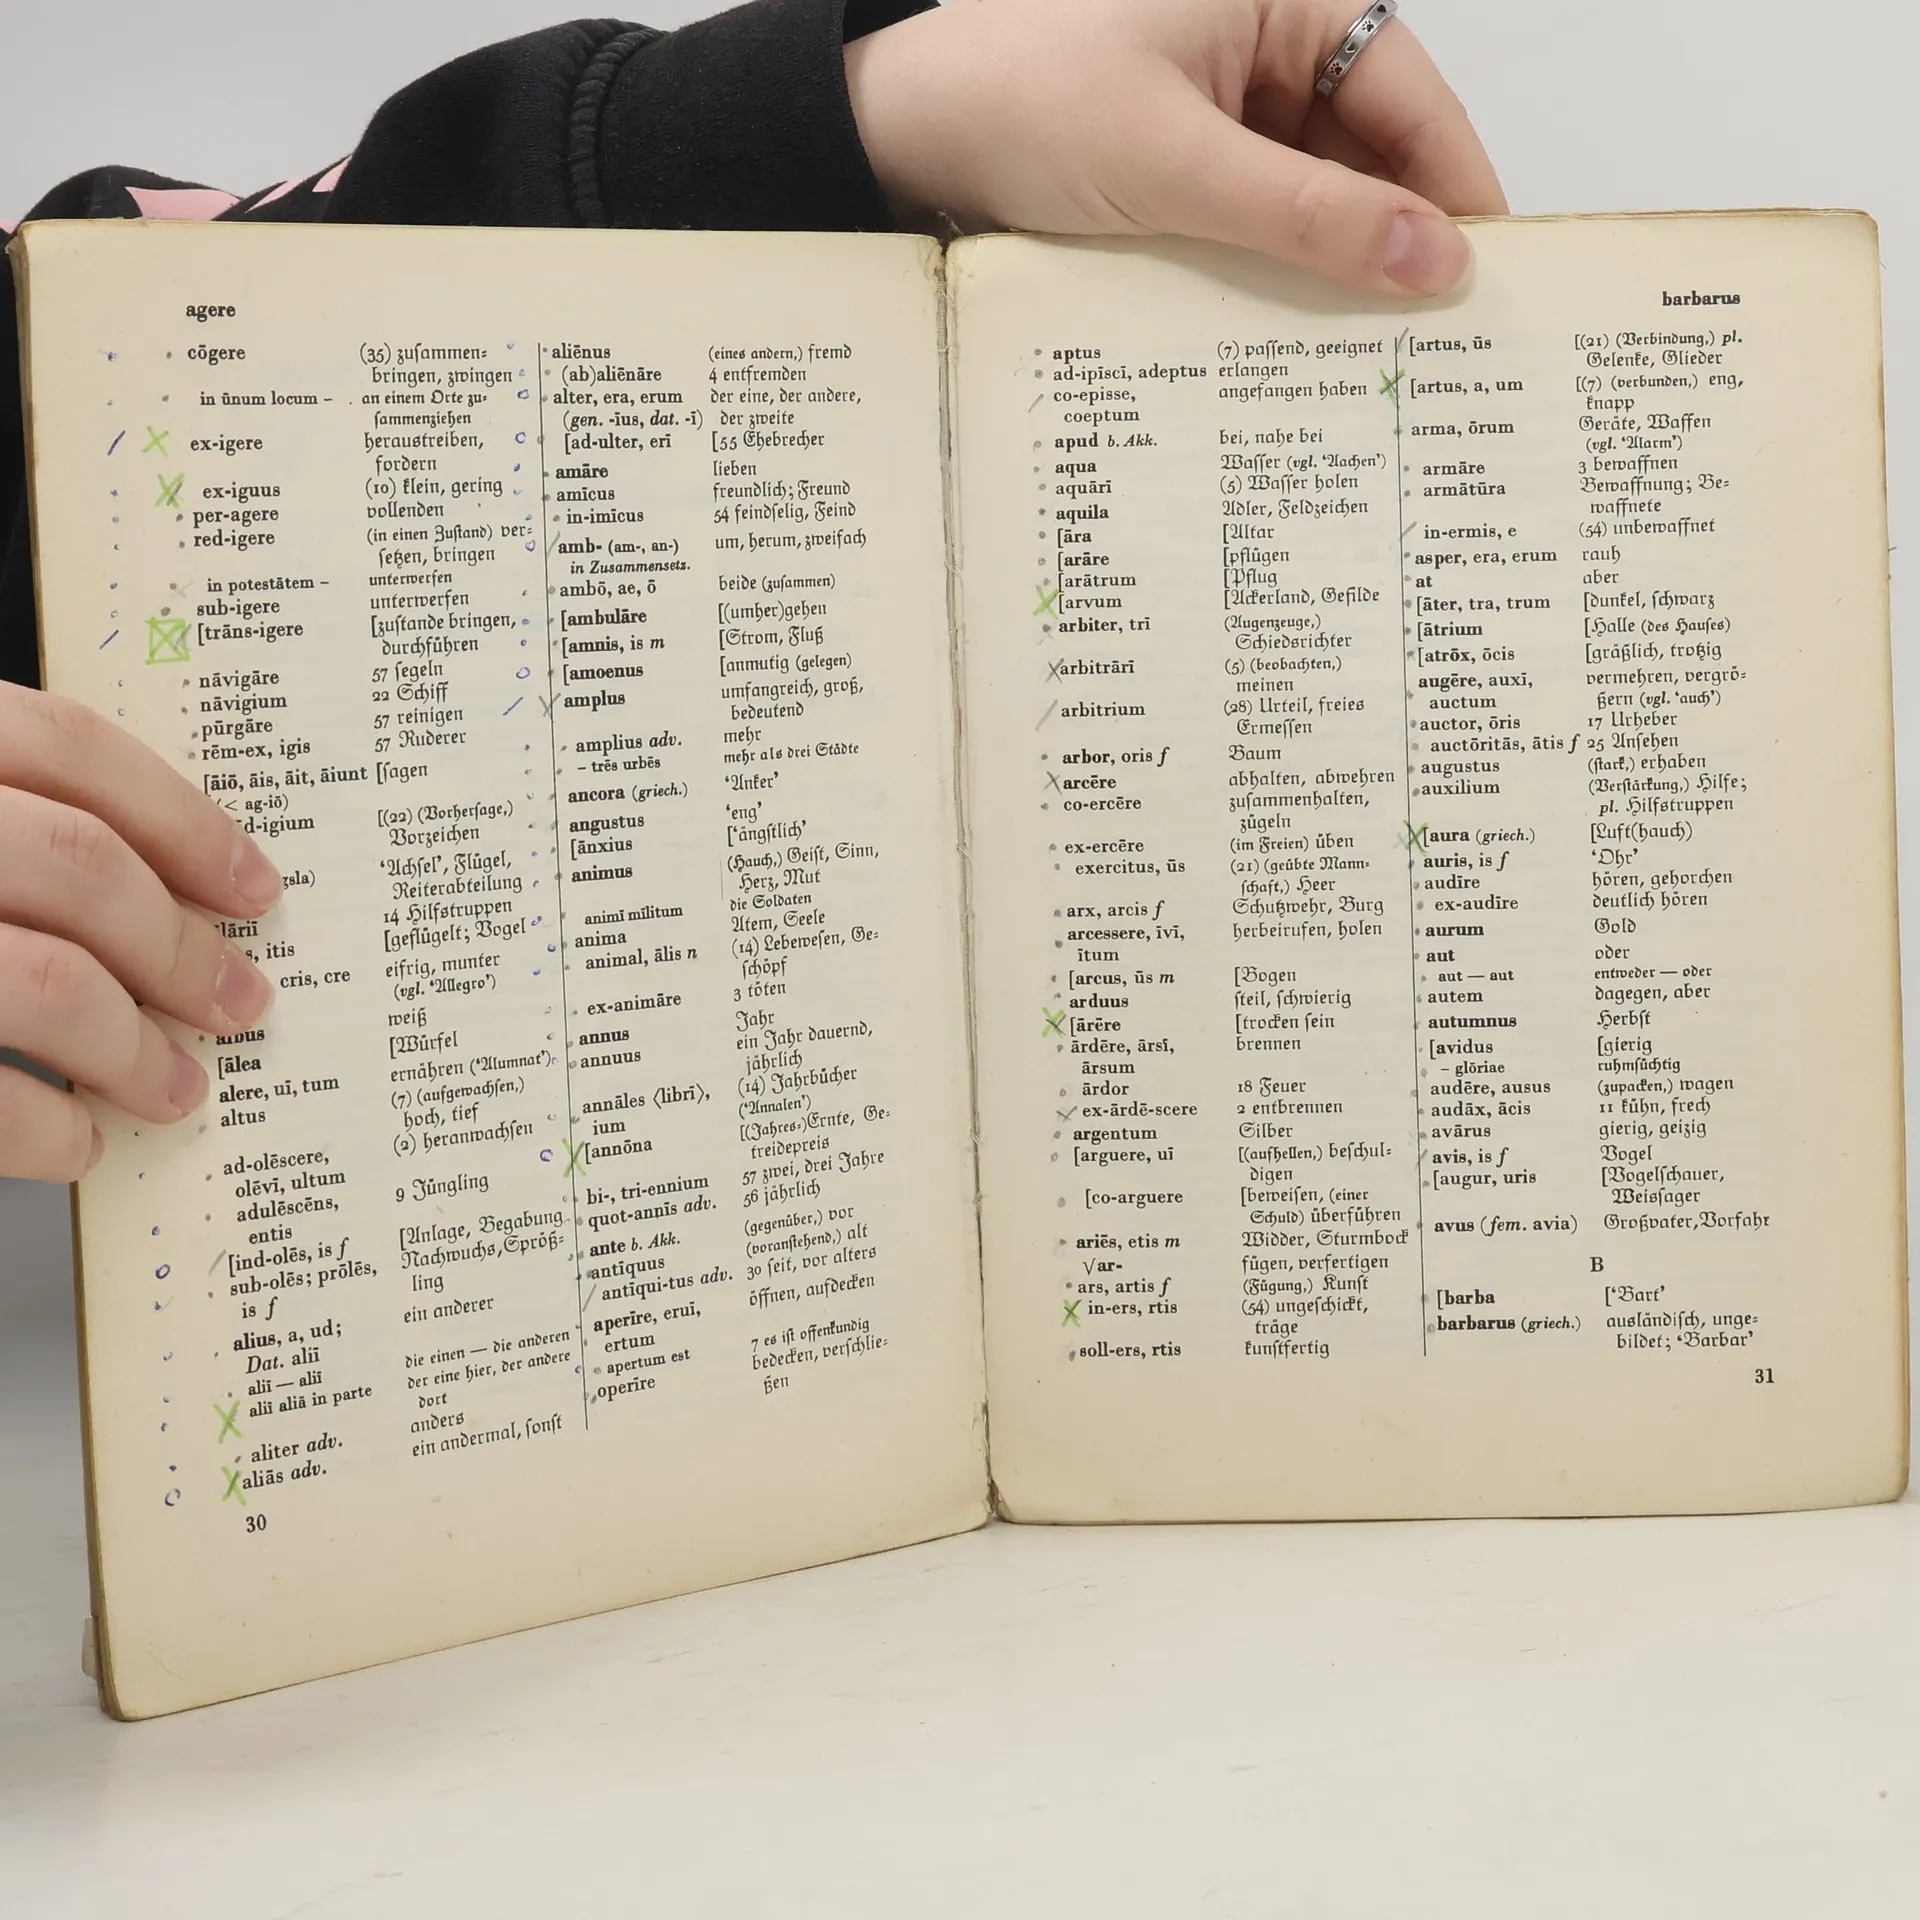 agere
cōgere (35) zuſammen=
bringen, zwingen
in ūnum locum – an einem Orte zu=
ſammenziehen
ex-igere heraustreiben,
fordern
ex-iguus (10) klein, gering
per-agere vollenden
red-igere (in einen Zuſtand) ver=
ſetzen, bringen
in potestātem – unterwerfen
sub-igere unterwerfen
[trāns-igere [zuſtande bringen,
durchführen
nāvigāre 57 ſegeln
nāvigium 22 Schiff
pūrgāre 57 reinigen
rēm-ex, igis 57 Ruderer
[āiō, āis, āit, āiunt [ſagen
(< ag-iō)
d-igium [(22) (Vorherſage,)
Vorzeichen
‘Achſel’, Flügel,
gsla) Reiterabteilung
lāriī 14 Hilfstruppen
s, itis [geflügelt; Vogel
cris, cre eifrig, munter
(vgl. ‘Allegro’)
albus weiß
[ālea [Würfel
alere, uī, tum ernähren (‘Alumnat’)
altus (7) (aufgewachſen,)
hoch, tief
ad-olēscere, (2) heranwachſen
olēvī, ultum
adulēscēns, 9 Jüngling
entis
[ind-olēs, is f [Anlage, Begabung
sub-olēs; prōlēs, Nachwuchs, Spröß=
is f ling
alius, a, ud; ein anderer
Dat. aliī
aliī — aliī die einen — die anderen
aliī aliā in parte der eine hier, der andere
dort
aliter adv. anders
aliās adv. ein andermal, ſonſt
30
aliēnus (eines andern,) fremd
(ab)aliēnāre 4 entfremden
alter, era, erum der eine, der andere,
(gen. -īus, dat. -ī) der zweite
[ad-ulter, erī [55 Ehebrecher
amāre lieben
amīcus freundlich; Freund
in-imīcus 54 feindſelig, Feind
amb- (am-, an-) um, herum, zweifach
in Zusammensetz.
ambō, ae, ō beide (zuſammen)
[ambulāre [(umher)gehen
[amnis, is m [Strom, Fluß
[amoenus [anmutig (gelegen)
amplus umfangreich, groß,
bedeutend
amplius adv. mehr
– trēs urbēs mehr als drei Städte
ancora (griech.) ‘Anker’
angustus ‘eng’
[ānxius [‘ängſtlich’
animus (Hauch,) Geiſt, Sinn,
Herz, Mut
animī mīlitum die Soldaten
anima Atem, Seele
animal, ālis n (14) Lebeweſen, Ge=
ſchöpf
ex-animāre 3 töten
annus Jahr
annuus ein Jahr dauernd,
jährlich
annāles ⟨librī⟩, (14) Jahrbücher
ium (‘Annalen’)
[annōna [(Jahres=)Ernte, Ge=
treidepreis
bi-, tri-ennium 57 zwei, drei Jahre
quot-annīs adv. 56 jährlich
ante b. Akk. (gegenüber,) vor
antīquus (voranſtehend,) alt
antīqui-tus adv. 30 ſeit, vor alters
aperīre, eruī, öffnen, aufdecken
ertum
apertum est 7 es iſt offenkundig
operīre bedecken, verſchlie=
ßen
barbarus
aptus (7) paſſend, geeignet
ad-ipīscī, adeptus erlangen
co-episse, angefangen haben
coeptum
apud b. Akk. bei, nahe bei
aqua Waſſer (vgl. ‘Aachen’)
aquārī (5) Waſſer holen
aquila Adler, Feldzeichen
[āra [Altar
[arāre [pflügen
[arātrum [Pflug
[arvum [Ackerland, Gefilde
arbiter, trī (Augenzeuge,)
Schiedsrichter
arbitrārī (5) (beobachten,)
meinen
arbitrium (28) Urteil, freies
Ermeſſen
arbor, oris f Baum
arcēre abhalten, abwehren
co-ercēre zuſammenhalten,
zügeln
ex-ercēre (im Freien) üben
exercitus, ūs (21) (geübte Mann=
ſchaft,) Heer
arx, arcis f Schutzwehr, Burg
arcessere, īvī, herbeirufen, holen
ītum
[arcus, ūs m [Bogen
arduus ſteil, ſchwierig
[ārēre [trocken ſein
ārdēre, ārsī, brennen
ārsum
ārdor 18 Feuer
ex-ārdē-scere 2 entbrennen
argentum Silber
[arguere, uī [(aufhellen,) beſchul=
digen
[co-arguere [beweiſen, (einer
Schuld) überführen
ariēs, etis m Widder, Sturmbock
√ar- fügen, verfertigen
ars, artis f (Fügung,) Kunſt
in-ers, rtis (54) ungeſchickt,
träge
soll-ers, rtis kunſtfertig
[artus, ūs [(21) (Verbindung,) pl.
Gelenke, Glieder
[artus, a, um [(7) (verbunden,) eng,
knapp
arma, ōrum Geräte, Waffen
(vgl. ‘Alarm’)
armāre 3 bewaffnen
armātūra Bewaffnung; Be=
waffnete
in-ermis, e (54) unbewaffnet
asper, era, erum rauh
at aber
[āter, tra, trum [dunkel, ſchwarz
[ātrium [Halle (des Hauſes)
[atrōx, ōcis [gräßlich, trotzig
augēre, auxī, vermehren, vergrö=
auctum ßern (vgl. ‘auch’)
auctor, ōris 17 Urheber
auctōritās, ātis f 25 Anſehen
augustus (ſtark,) erhaben
auxilium (Verſtärkung,) Hilfe;
pl. Hilfstruppen
[aura (griech.) [Luft(hauch)
auris, is f ‘Ohr’
audīre hören, gehorchen
ex-audīre deutlich hören
aurum Gold
aut oder
aut — aut entweder — oder
autem dagegen, aber
autumnus Herbſt
[avidus [gierig
– glōriae ruhmſüchtig
audēre, ausus (zupacken,) wagen
audāx, ācis 11 kühn, frech
avārus gierig, geizig
avis, is f Vogel
[augur, uris [Vogelſchauer,
Weisſager
avus (fem. avia) Großvater, Vorfahr
B
[barba [‘Bart’
barbarus (griech.) ausländiſch, unge=
bildet; ‘Barbar’
31